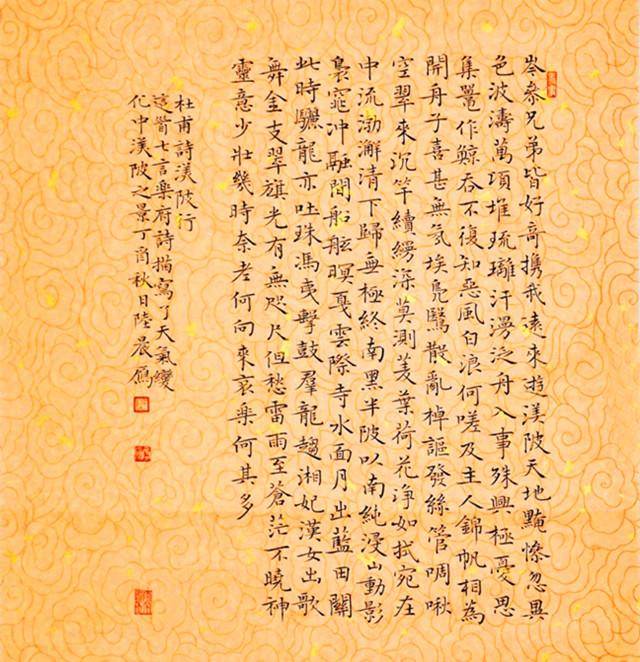 岑叅兄弟皆好奇携我遠來遊渼陂天地黤慘忽異
色波濤萬頃堆琉璃汗漫泛舟入事殊興極憂思
集鼉作鯨吞不復知惡風白浪何嗟及主人錦帆相為
開舟子喜甚無氛埃鳧鷖散亂棹謳發絲管啁啾
空翠來沉竿續縵深莫測菱葉荷花淨如拭宛在
中流渤澥清下歸無極終南黑半陂以南純浸山動影
裊窕沖融間船舷暝戛雲際寺水面月出藍田關
此時驪龍亦吐珠馮夷擊鼓羣龍趨湘妃漢女出歌
舞金支翠旗光有無咫尺但愁雷雨至蒼茫不曉神
靈意少壯幾時奈老何向來哀樂何其多
杜甫詩渼陂行
這首七言樂府詩描寫了天氣變
化中渼陂之景丁酉秋日陸晨寫